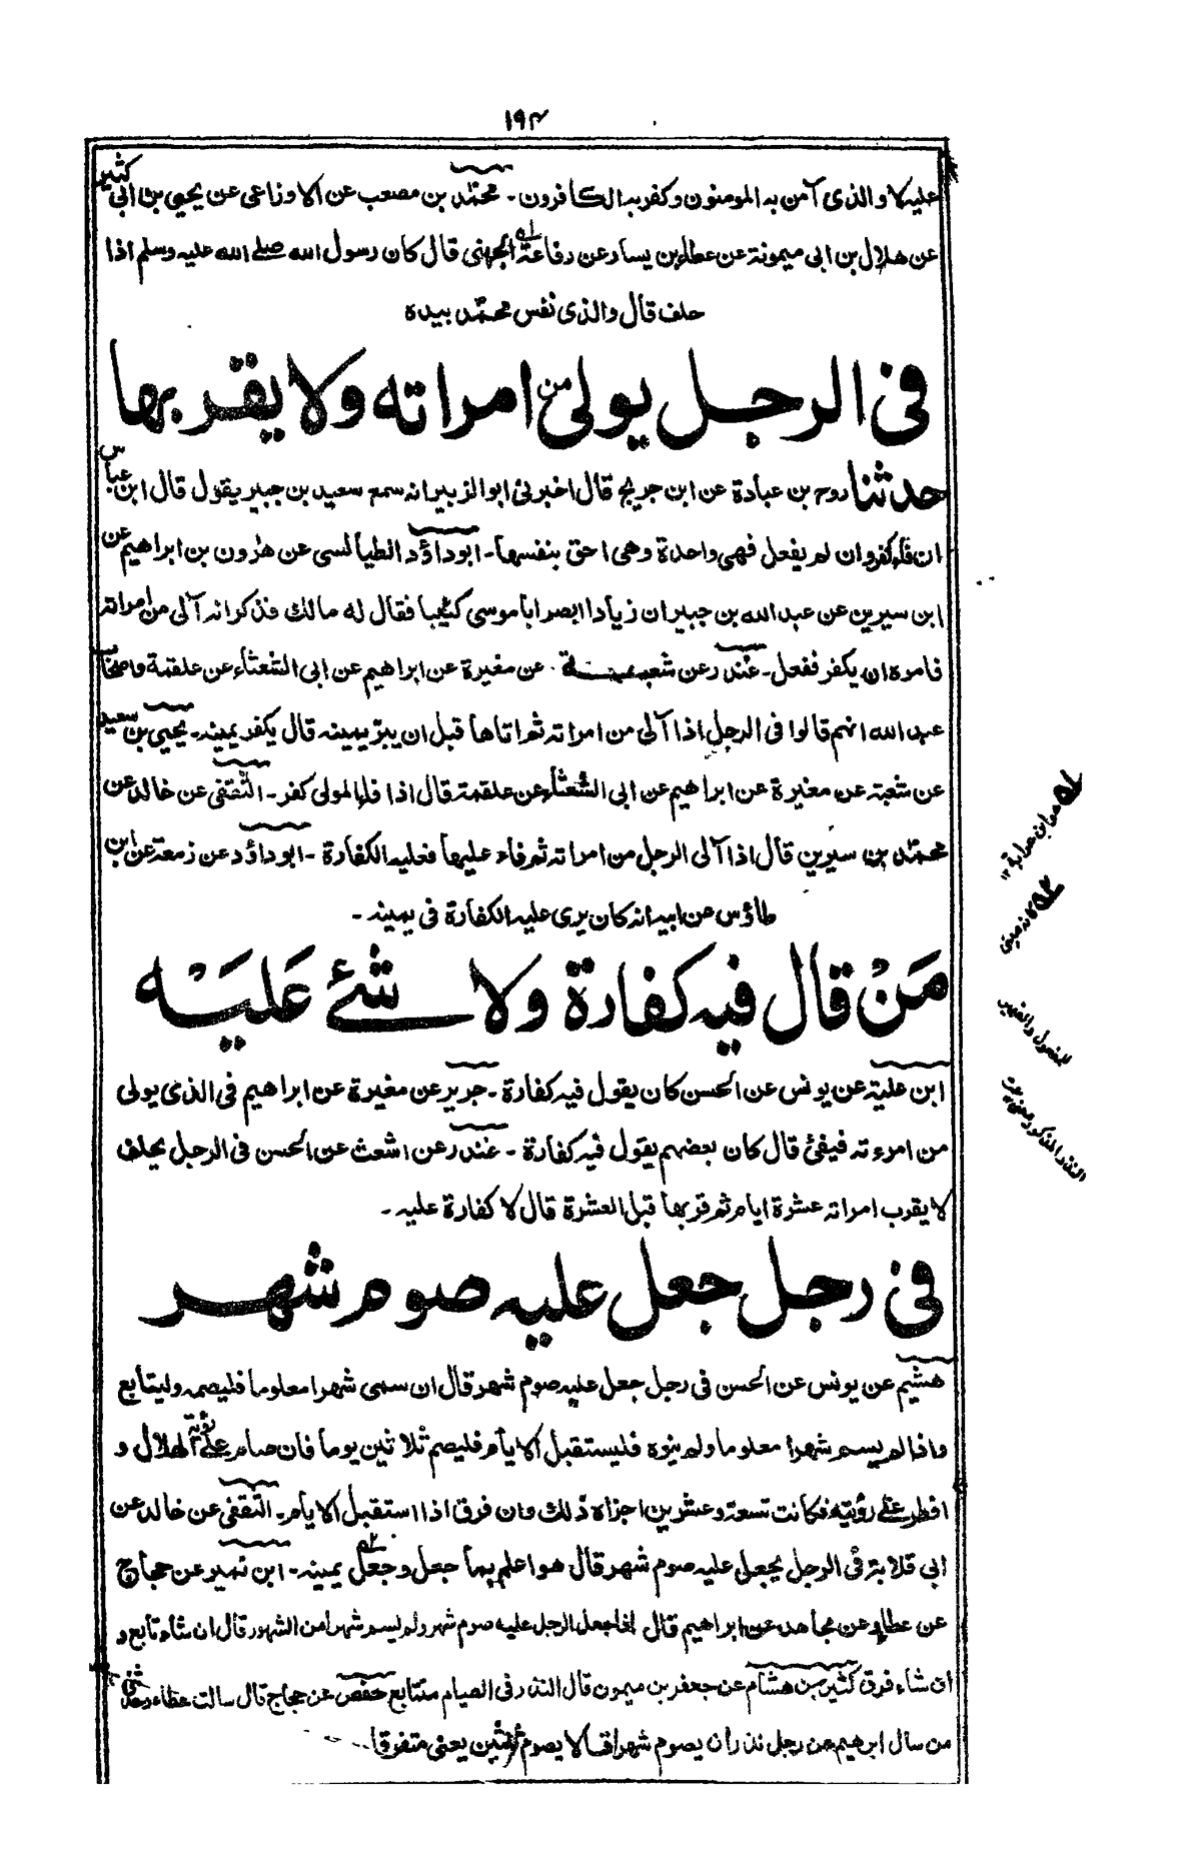 ۱۹۴
عليه لا والذى آمن به المومنون وكفر به الكافرون - محمّد بن مصعب عن الاوزاعى عن يحيى بن ابى كثير
عن هلال بن ابى ميمونة عن عطاء بن يسار عن رفاعة الجهنى قال كان رسول الله صلے الله عليه وسلم اذا
حلف قال والذى نفس محمّد بيده
فى الرجل يولى من امراته ولا يقربها
حدثنا روح بن عبادة عن ابن جريج قال اخبرنى ابو الزبير انه سمع سعيد بن جبير يقول قال ابن عباس
ان فاء كفر وان لم يفعل فهى واحدة وهى احق بنفسها - ابوداؤد الطيالسى عن هٰرون بن ابراهيم عن
ابن سيرين عن عبد الله بن جبير ان زيادا ابصر اباموسى كئيبا فقال له مالك فذكر انه آلى من امراته
فامره ان يكفر ففعل - غندر عن شعبة عن مغيرة عن ابراهيم عن ابى الشعثاء عن علقمة واصحاب
عبد الله انهم قالوا فى الرجل اذا آلى من امراته ثم اتاها قبل ان يبرّ يمينه قال يكفر يمينه - يحيى بن سعيد
عن شعبة عن مغيرة عن ابراهيم عن ابى الشعثاء عن علقمة قال اذا فاء المولى كفر - الثقفى عن خالد عن
محمّد بن سيرين قال اذا آلى الرجل من امراته ثم فاء عليها فعليه الكفارة - ابوداؤد عن زمعة عن ابن
طاؤس عن ابيه انه كان يرى عليه الكفارة فى يمينه -
مَنْ قال فيه كفارة ولا شئ عَليَه
ابن علية عن يونس عن الحسن كان يقول فيه كفارة - جرير عن مغيرة عن ابراهيم فى الذى يولى
من امرءته فيفئ قال كان بعضهم يقول فيه كفارة - غندر عن اشعث عن الحسن فى الرجل يحلف
لا يقرب امراته عشرة ايام ثم قربها قبل العشرة قال لا كفارة عليه -
فى رجل جعل عليه صوم شهر
هشيم عن يونس عن الحسن فى رجل جعل عليه صوم شهر قال ان سمى شهرا معلوما فليصمه وليتابع
واذا لم يسم شهرا معلوما ولم ينوه فليستقبل الايام فليصم ثلاثين يوما فان صام على رؤية الهلال و
افطر على رؤيته فكانت تسعة وعشرين اجزاه ذلك وان فرق اذا استقبل الايام - الثقفى عن خالد عن
ابى قلابة فى الرجل يجعل عليه صوم شهر قال هو اعلم بما جعل وجعل يمينه - ابن نمير عن حجاج
عن عطاء وعن مجاهد عن ابراهيم قال اذا جعل الرجل عليه صوم شهر ولم يسم شهرا من الشهور قال ان شاء تابع و
ان شاء فرق كثير بن هشام عن جعفر بن ميمون قال النذر فى الصيام متتابع حفص عن حجاج قال سالت عطاء وحدثنى
من سال ابرهيم عن رجل نذر ان يصوم شهرا قالا يصوم ثلثين يعنى متفرقا